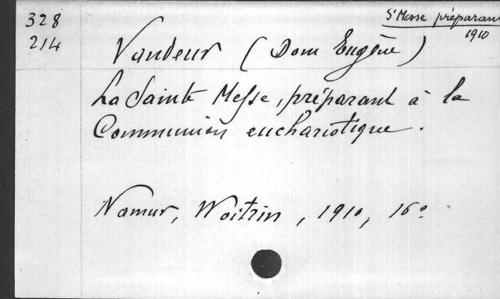 328
214
Ste Messe préparant
1910
Vandeur (Dom Eugène)
La Sainte Messe, préparant à la
Communion eucharistique.
Namur, Woitrin, 1910, 16º